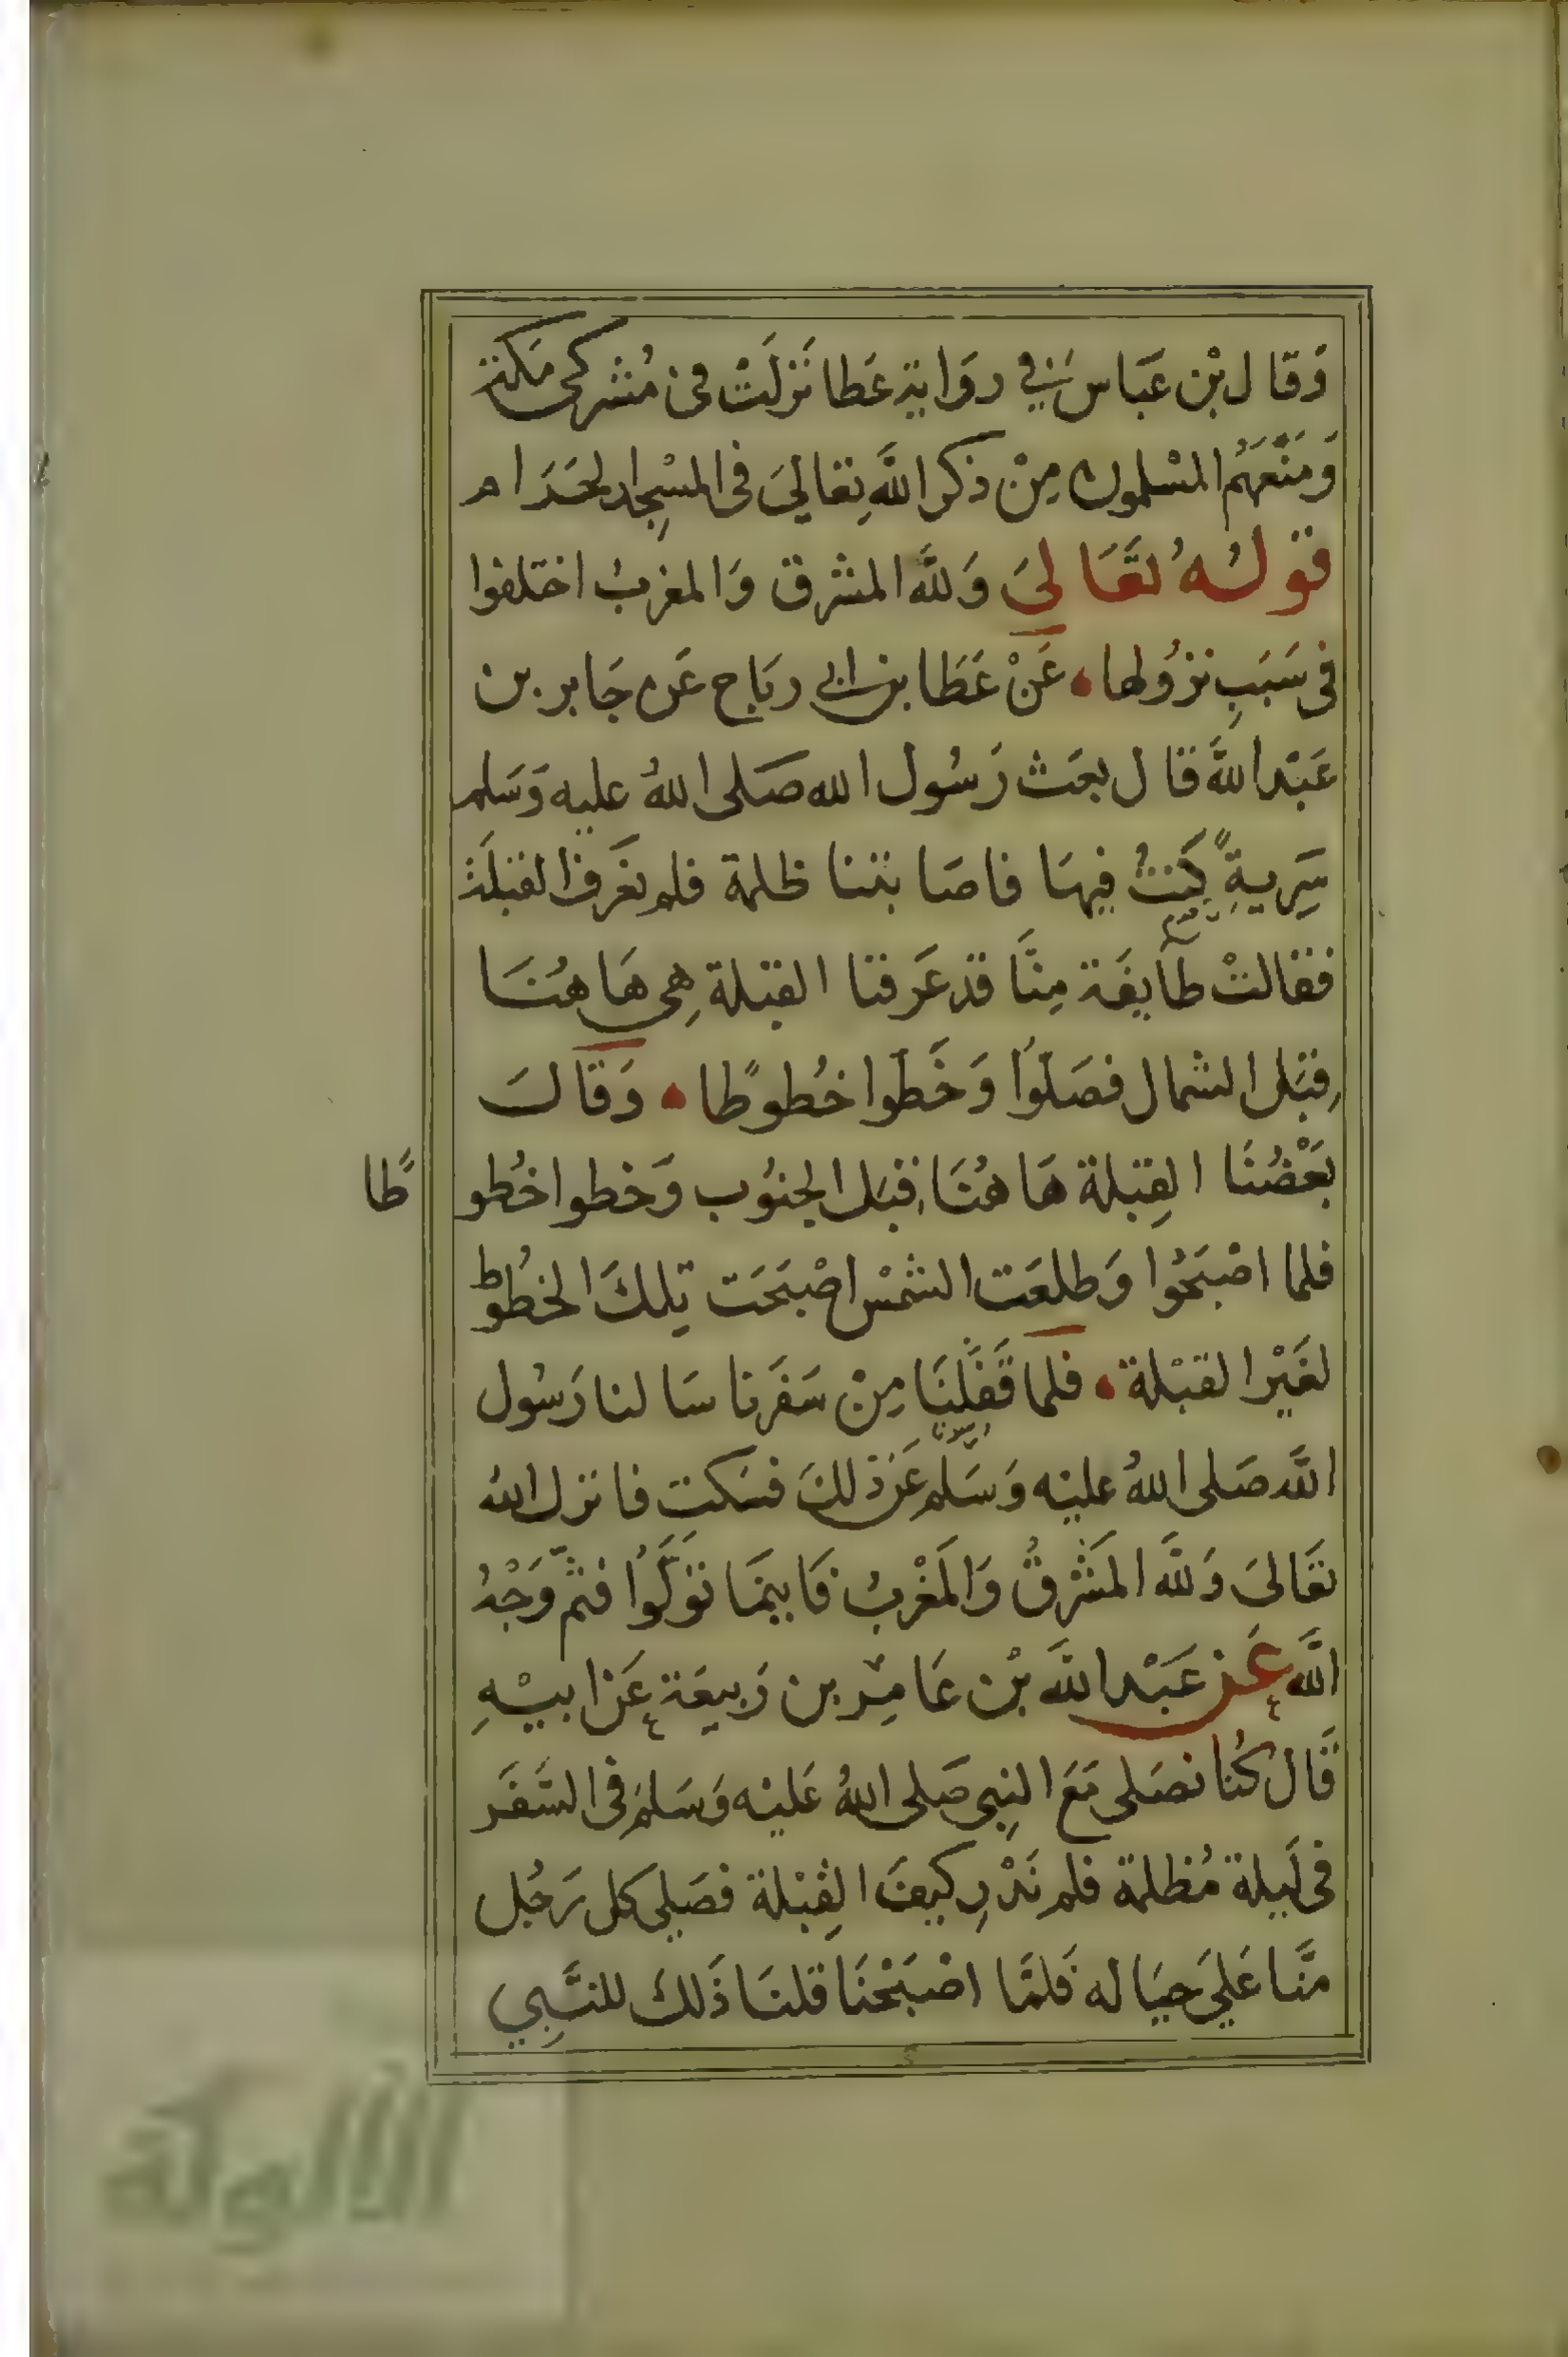 وَقال بْن عَباس في روَاية عَطا نَزلَتْ في مُشركي مَكة
وَمَنَعَهُم المسْلمون مِنْ ذكر اللَّه تِعاليَ في المسْجِد الحَرَام
قولُه تَعَاليَ وَللَّه المشرق وَالمغرب اختلفوا
في سَبَبِ نزوُلها عَنْ عَطَا بن ابي ربَاح عَن جَابر بن
عَبْد اللَّه قال بعَث رَسُول الله صَلى اللهُ عليه وَسَلم
سَرِيةً كنتُ فيهَا فاصَابتنا ظلمة فلم نعَرف القبلَة
فقالتْ طَايفَة مِنَّا قد عَرفنا القبلة هِي هَاهُنَا
قِبَل الشمال فصَلوُا وَخَطوا خُطوطًا وَقالت
بَعْضُنَا القِبلة هَاهُنَا قِبَل الجنوُب وَخطوا خُطو
طًا
فلما اصْبَحُوا وَطلعَت الشمْس اصْبَحَت تِلكَ الخُطوُط
لغَيْر القبْلة فلما قَفَلنَا مِنْ سَفَرنا سَالنا رَسُول
اللَّه صَلى اللهُ عليْه وَسَلم عَن ذلكَ فسَكت فانزل اللهُ
تعَاليَ وَللَّه المَشْرقُ وَالمَغْربُ فَاينمَا تَوَلَّوُا فثمَّ وَجْهُ
اللَّه عَن عَبْد اللَّه بْن عَامِر بن رَبيعَة عَن ابيْهِ
قَال كُنا نصَلى مَعَ النبِي صَلى اللهُ عَليْه وَسَلم في السَّفَر
في لَيلة مُظلمة فلم نَدْرِ كيفَ القِبْلة فصَلي كل رَجُل
مِنَّا عَليَ حِيَاله فَلمَّا اصْبَحْنَا قلنَا ذَلكَ للنَّبِي
الألوكة